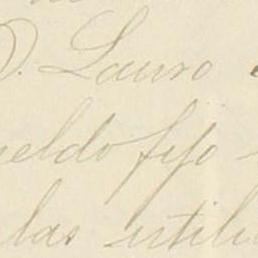 D. Lauro
sueldo fijo
las utili